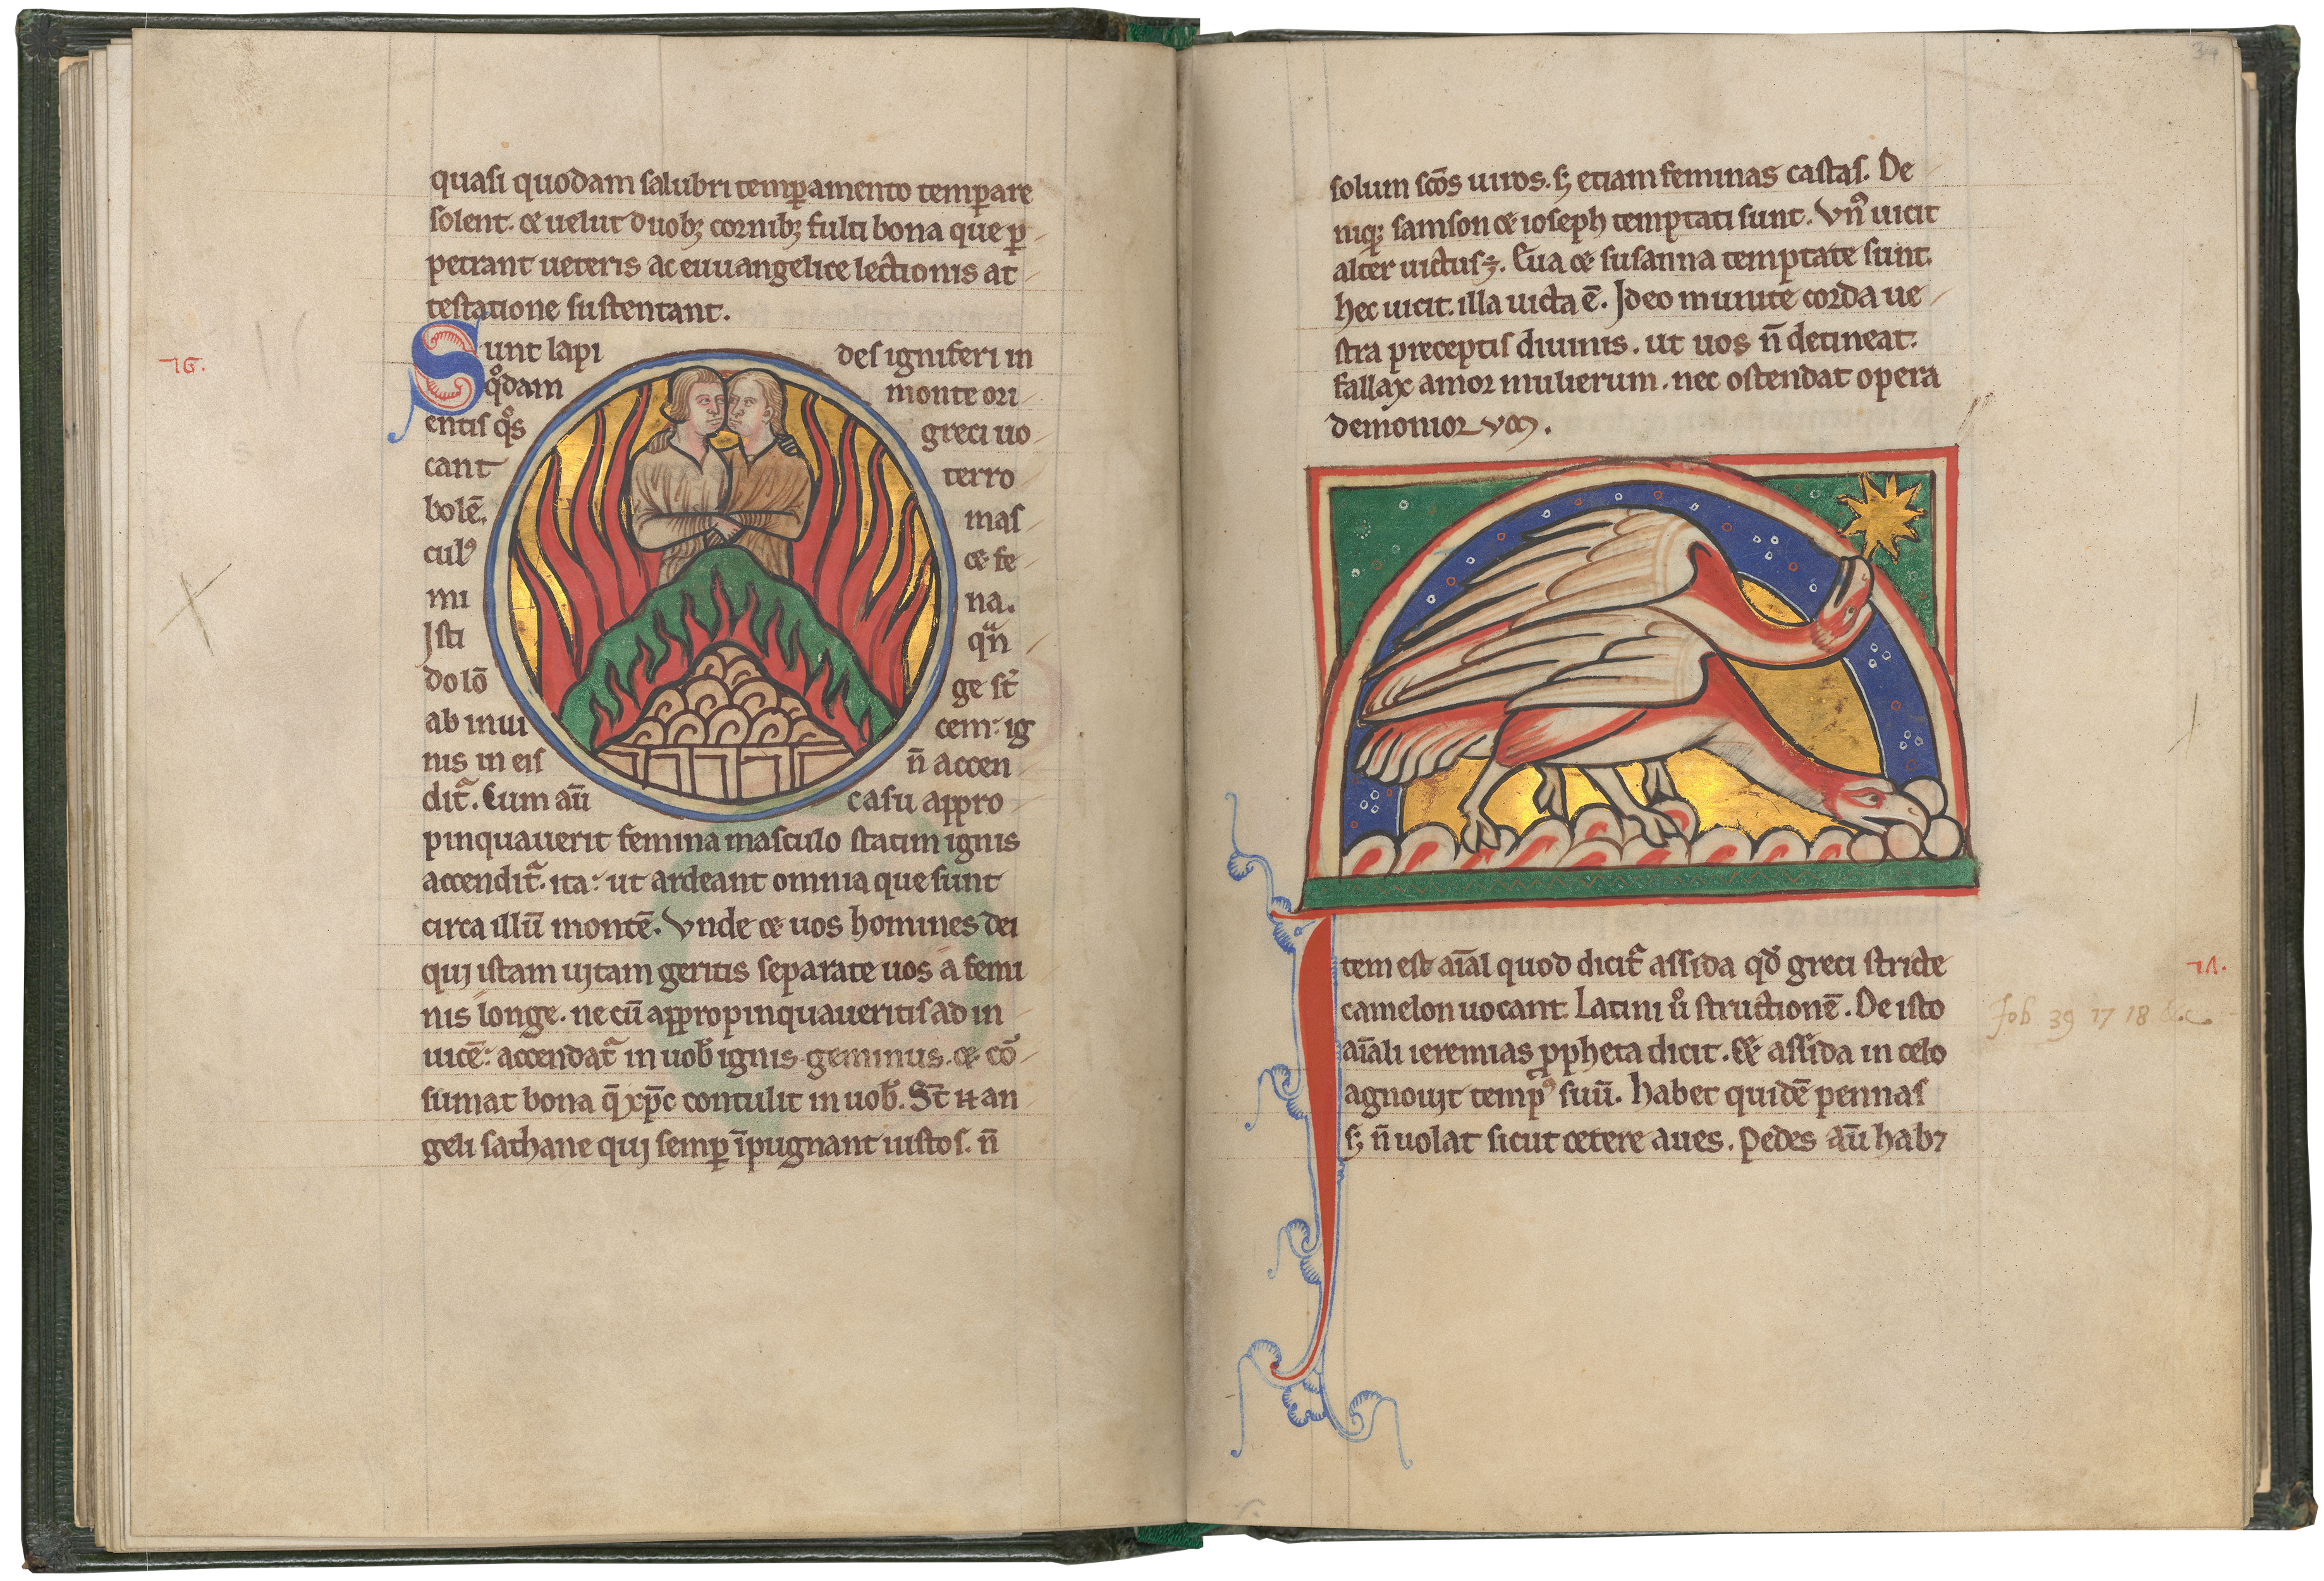 quasi quodam salubri temꝑamento temꝑare
solent. ⁊ uelut duobꝫ cornibꝫ fulti bona que ꝑ
petrant ueteris ac euuangelice lectionis at
testatione sustentant.
Sunt lapides igniferi in
qͦdam monte ori
entis qͦs greci uo
cant terro
bolē. mas
culꝰ ⁊ fe
mi na.
Isti qn̄
do lō ge st̄
ab inui cem: ig
nis in eis n̄ accen
dit᷑. Cum aū casu appro
pinquauerit femina masculo statim ignis
accendit᷑. ita: ut ardeant omnia que sunt
circa illū montē. Vnde ⁊ uos homines dei
qui istam uitam geritis separate uos a femi
nis longe. ne cū appropinquaueritis ad in
uicē: accendat᷑ in uob̄ ignis geminus. ⁊ cō
sumat bona q̄ xp̄c contulit in uob̄. St̄ n an
geli sathane qui semꝑ īpugnant iustos. n̄
16.
34
solum scōs uiros. sꝫ etiam feminas castas. De
niqꝫ samson ⁊ ioseph temptati sunt. Vnꝰ uicit
alter uictus ÷. Eua ⁊ susanna temptate sunt.
hec uicit. illa uicta ē. Ideo munite corda ue
stra preceptis diuinis. ut uos n̄ detineat
fallax amor mulierum. nec ostendat opera
demonior vm.
Item est aīal quod dicit᷑ assida qd̄ greci stricte
camelon uocant. Latini u͛o structionē. De isto
aīali ieremias ꝓpheta dicit. Et assida in celo
agnouit tempꝰ suū. habet quidē pennas
sꝫ n̄ uolat sicut cetere aues. pedes aū habꝫ
Job 39 17 18 &c.